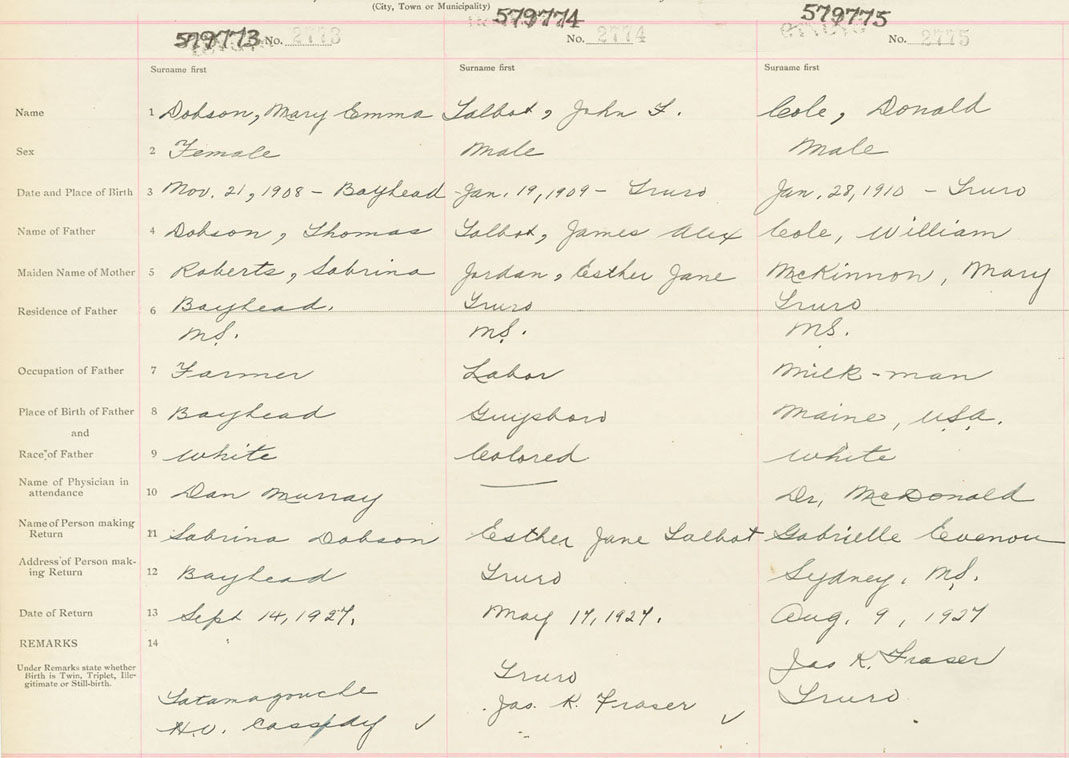 (City, Town or Municipality)
579773 No. 2773
579774
No. 2774
579775
No. 2775
Surname first Surname first Surname first
Name 1 Dobson, Mary Emma Talbot, John F. Cole, Donald
Sex 2 Female Male Male
Date and Place of Birth 3 Nov. 21, 1908 - Bayhead Jan. 19, 1909 - Truro Jan. 28, 1910 - Truro
Name of Father 4 Dobson, Thomas Talbot, James Alex Cole, William
Maiden Name of Mother 5 Roberts, Sabrina Jordan, Esther Jane McKinnon, Mary
Residence of Father 6 Bayhead. Truro Truro
N.S. N.S. N.S.
Occupation of Father 7 Farmer Labor Milk-man
Place of Birth of Father 8 Bayhead Guysboro Maine, USA.
and
Race of Father 9 White Colored White
Name of Physician in
attendance 10 Dan Murray Dr. McDonald
Name of Person making
Return 11 Sabrina Dobson Esther Jane Talbot Gabrielle
Address of Person mak-
ing Return 12 Bayhead Truro Sydney, N.S.
Date of Return 13 Sept 14, 1927. May 17, 1927. Aug. 9, 1927
REMARKS 14
Under Remarks state whether
Birth is Twin, Triplet, Ille-
gitimate or Still-birth.
Tatamagouche Truro Jas K. Fraser
H.V. Cassidy ✓ Jas. K. Fraser ✓ Truro